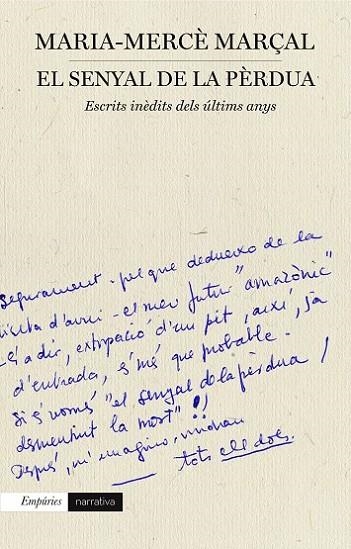 MARIA-MERCÈ MARÇAL
EL SENYAL DE LA PÈRDUA
Escrits inèdits dels últims anys
Segurament - pel que dedueixo de la
visita d'avui - el meu futur "amazònic"
(és a dir, extirpació d'un pit, així, ja
d'entrada, és més que probable.
Si és només "el senyal de la pèrdua /
desmentint la mort"!)
Després, m'imagino, vindran
tots ells dols.
Empúries narrativa